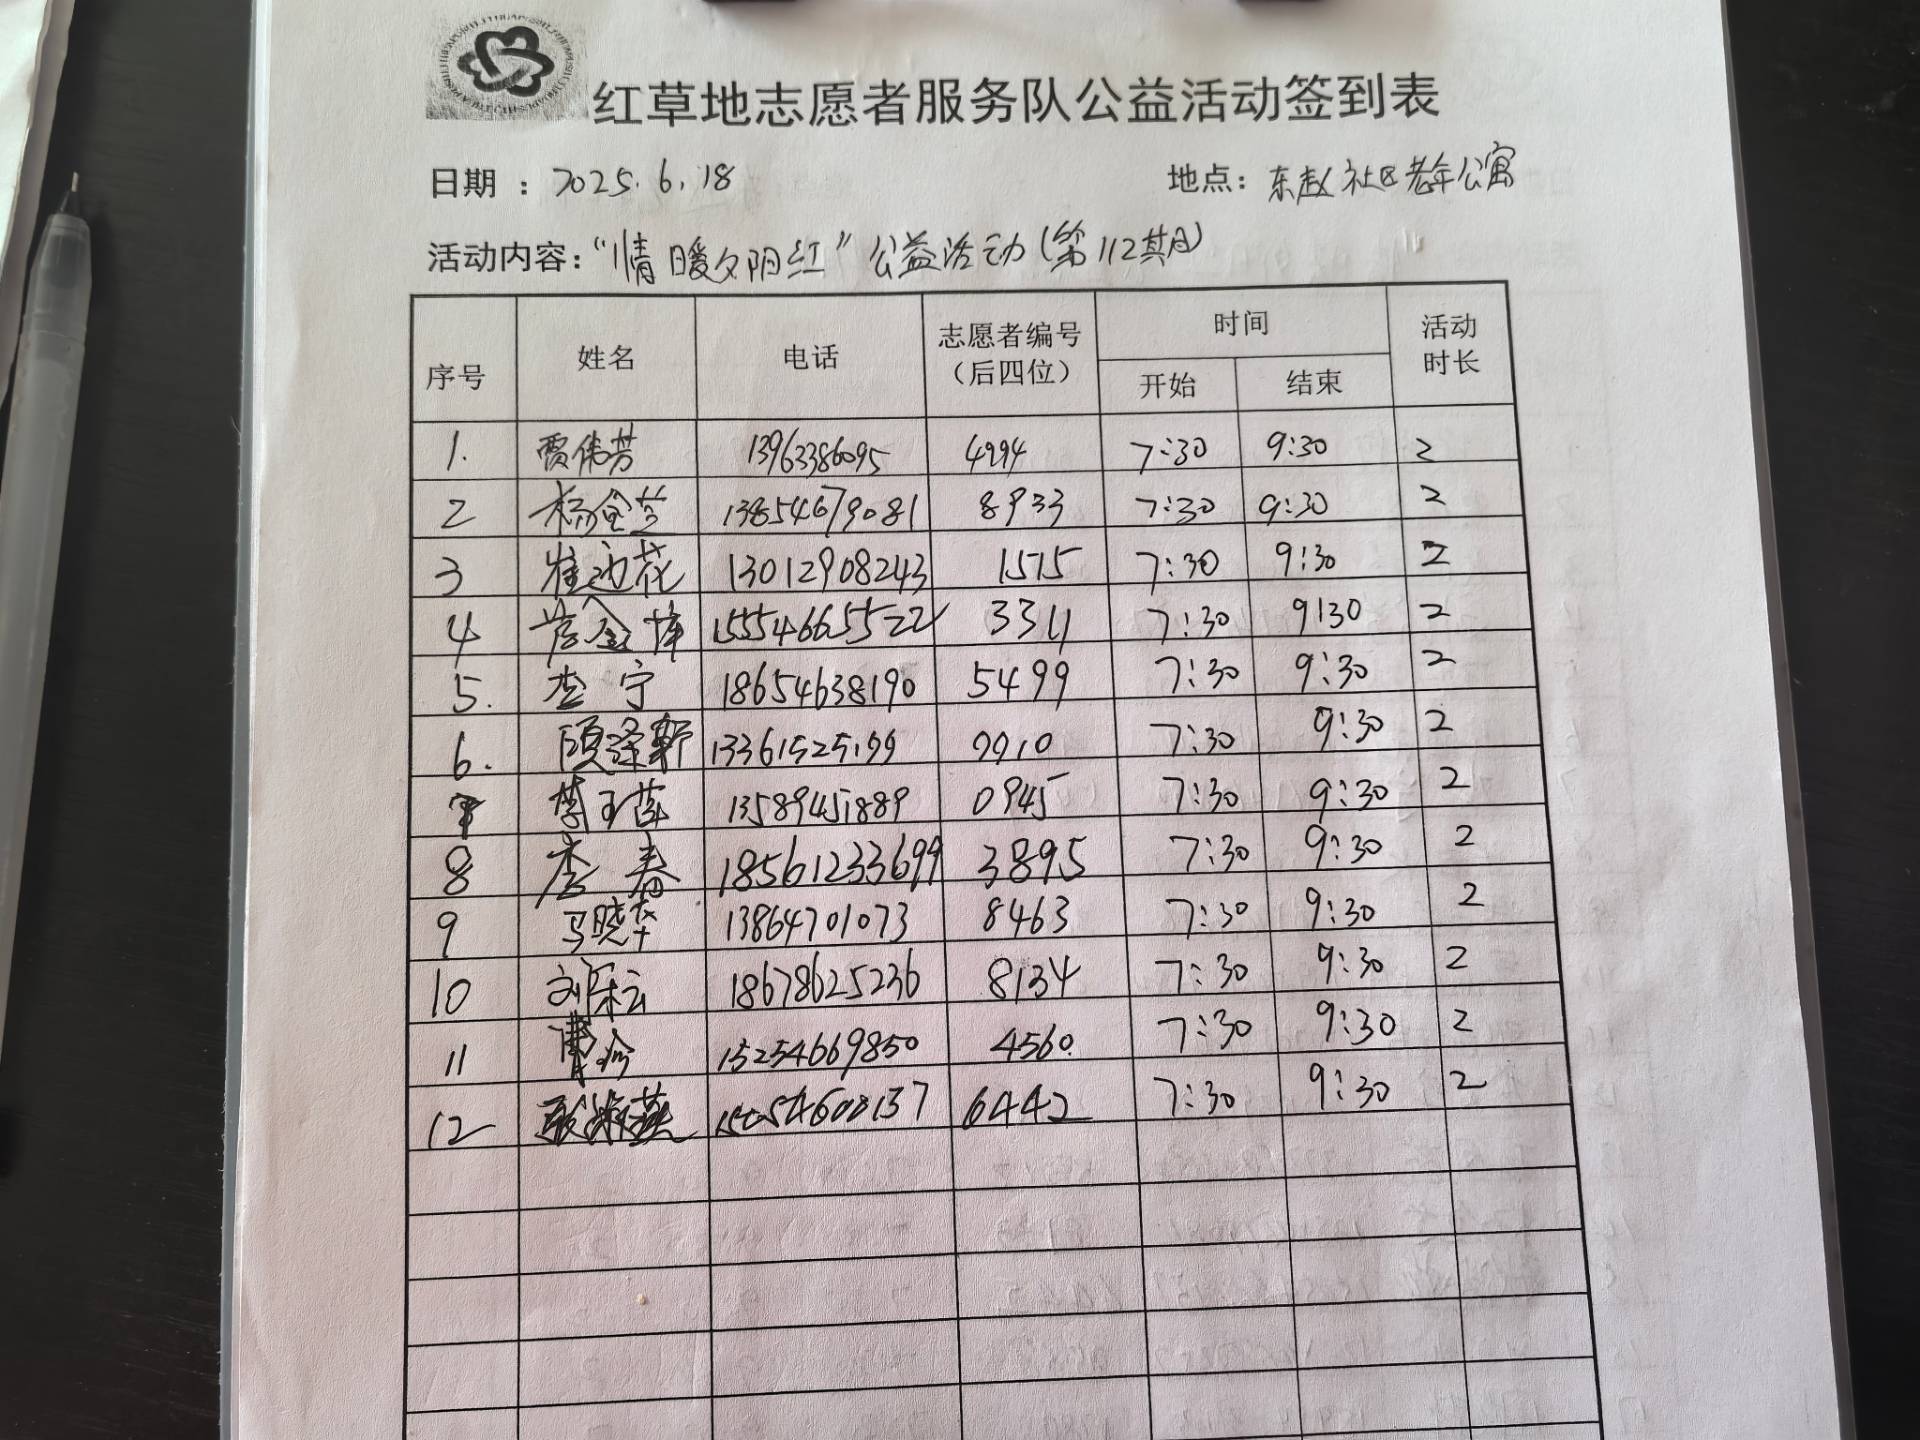 红草地志愿者服务队公益活动签到表
日期：2025.6.18 地点：东赵社区老年公寓
活动内容：“情暖夕阳红”公益活动（第112期）
序号 姓名 电话 志愿者编号（后四位） 时间 开始 结束 活动时长
1. 贾伟芳 13963386095 4294 7:30 9:30 2
2 杨金兰 13854679081 8933 7:30 9:30 2
3 13012908243 1575 7:30 9:30 2
4 15554665522 3311 7:30 9:30 2
5. 李宁 18654638190 5499 7:30 9:30 2
6. 顾逢轩 13361525199 9910 7:30 9:30 2
7 李玉萍 13589451889 0945 7:30 9:30 2
8 李春 18561233699 3895 7:30 9:30 2
9 马晓华 13864701073 8463 7:30 9:30 2
10 刘乐云 18678625236 8134 7:30 9:30 2
11 15254669850 4560 7:30 9:30 2
12 6442 7:30 9:30 2